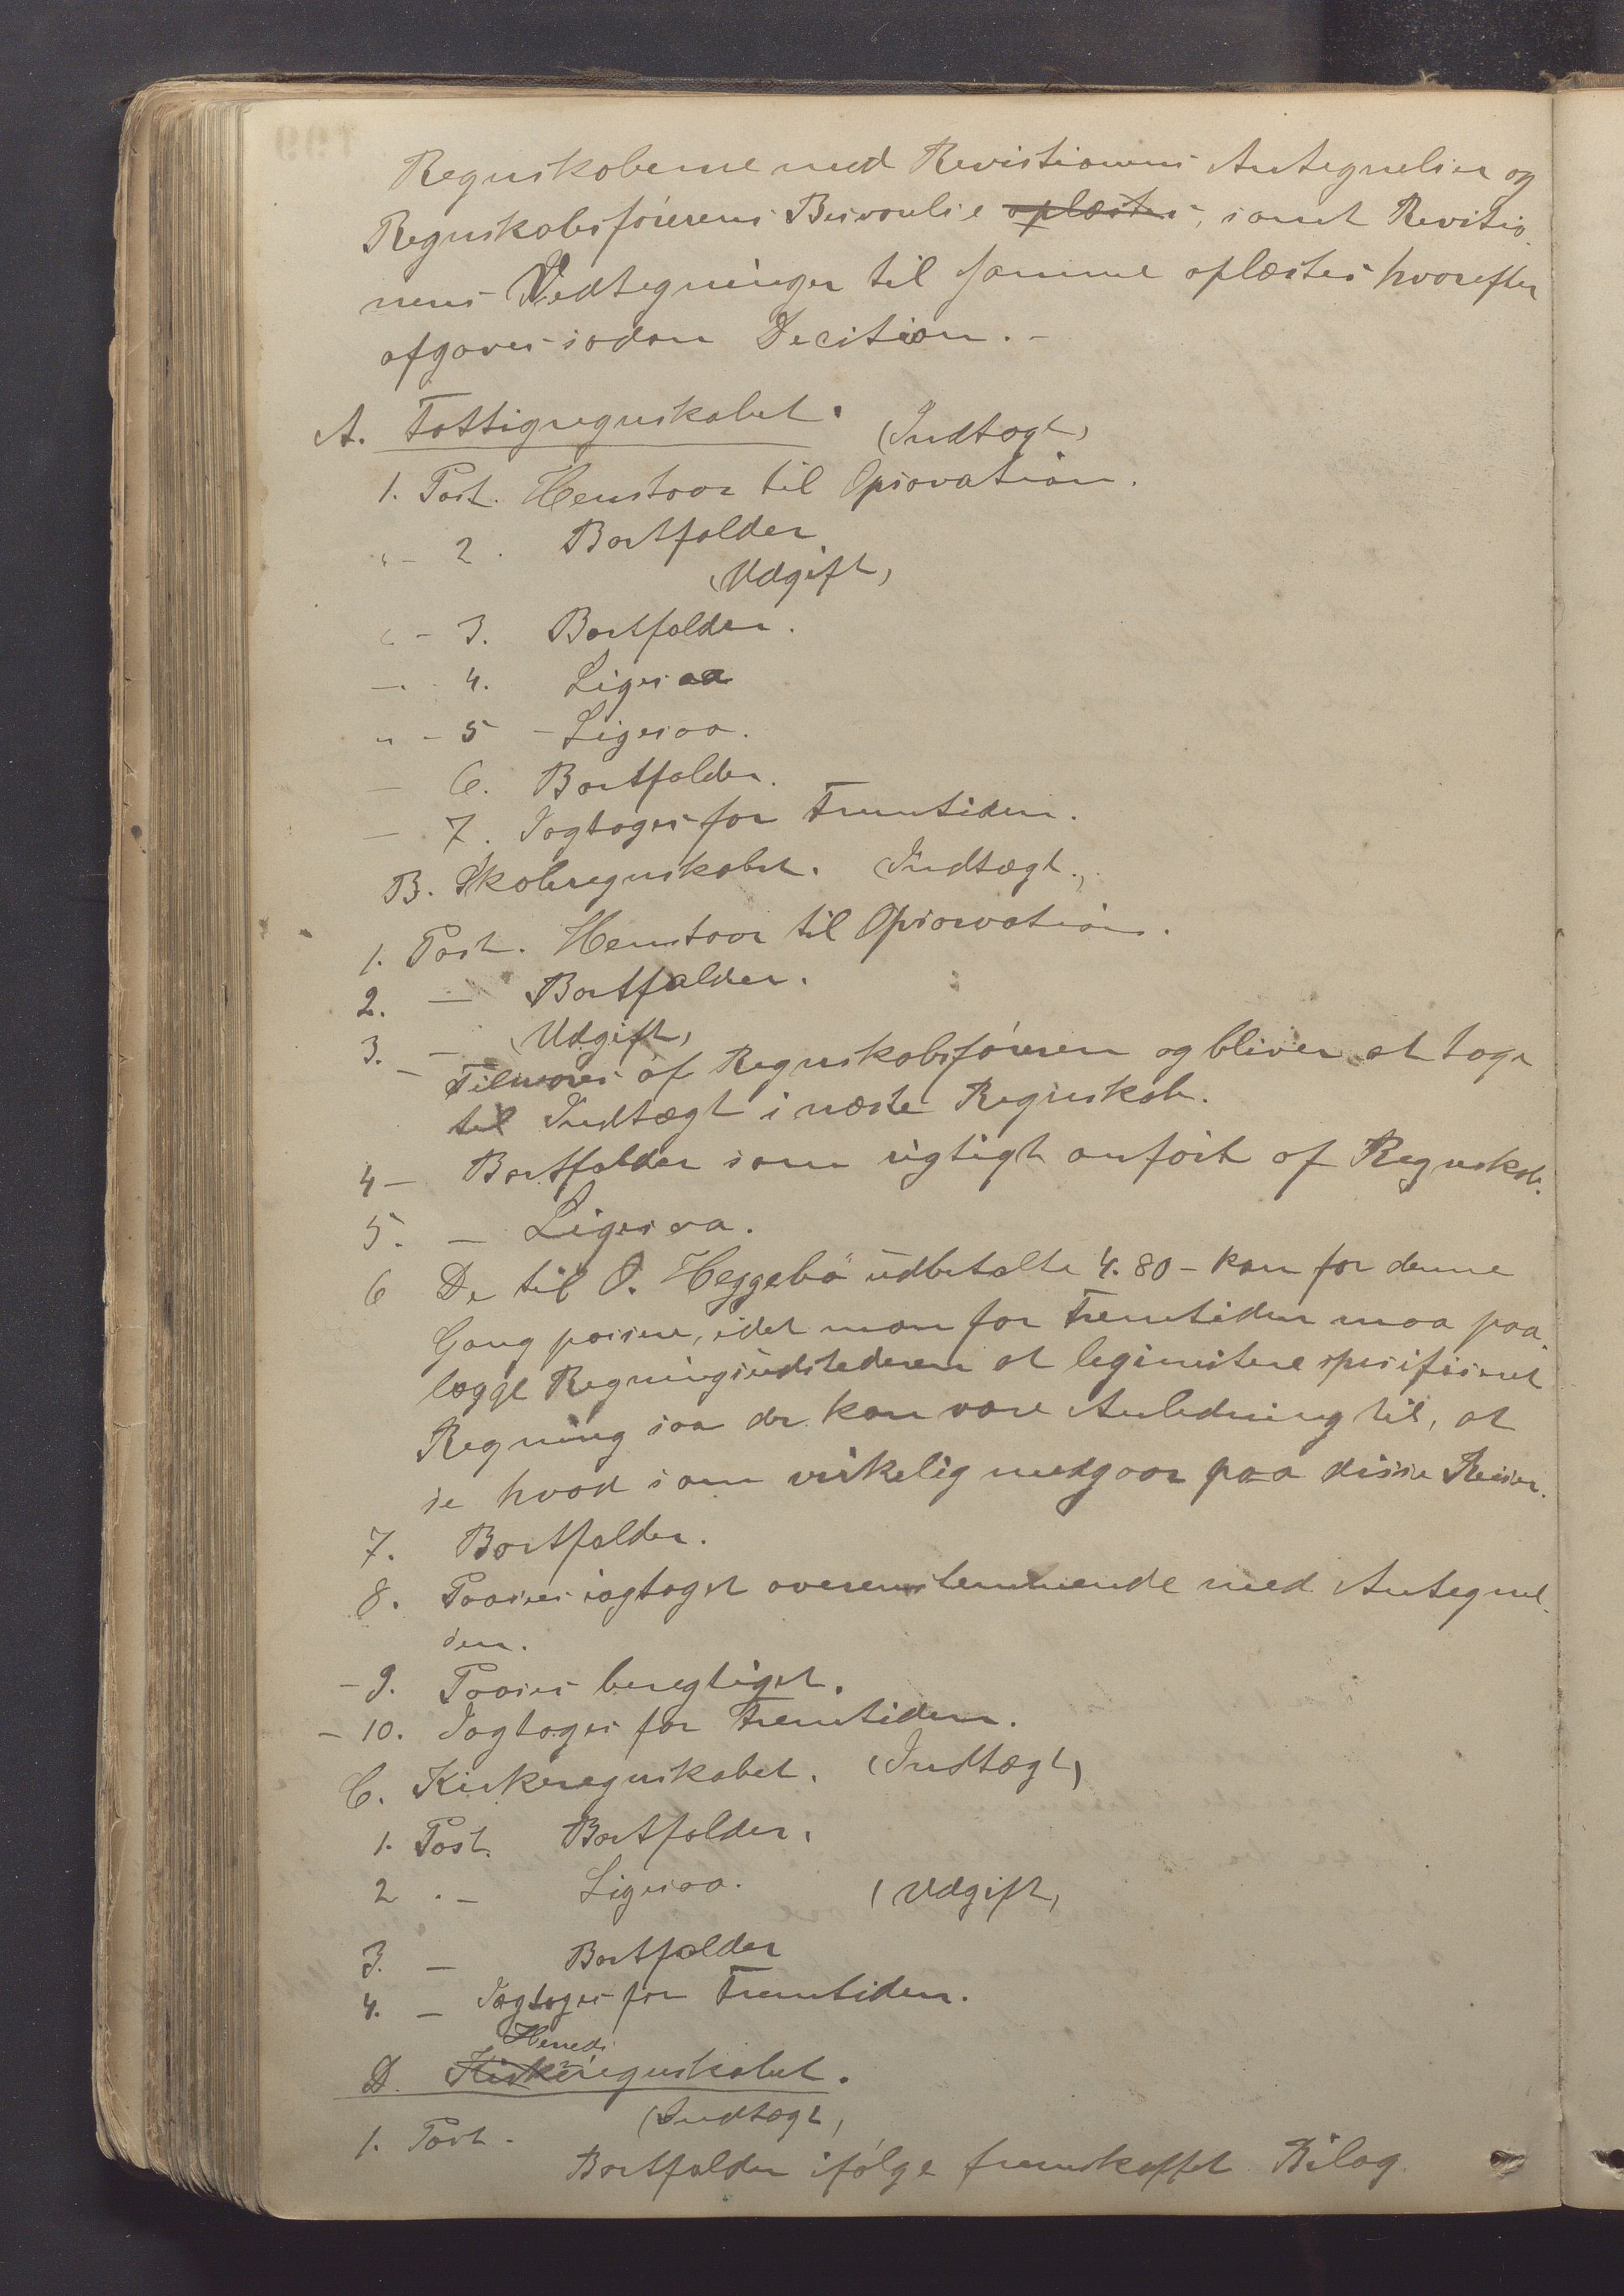 Regnskoberne med Revistionens Antegnelser og
Regnskobsførerens Besvarelse oplæstes, samt Revitio
nens Vedtegninger til samme oplæstes hvorefter
afgaves sodan Decition. -
A. Fattigregnskabet. (Indtægt)
1. Post. Henstaar til Opsarvation.
" - 2. Bortfalder
(Udgift)
" - 3. Bortfalder.
- " 4. Ligesaa
" - 5 - Ligesaa.
- 6. Bortfalder.
- 7. Iagtages for Fremtiden.
B. Skoleregnskabet. (Indtægt.)
1. Post. Henstaar til Opsarvation.
2. - Bortfalder.
3. - (Udgift)
- Tilsvares af Regnskabsføreren og bliver at tage
til Indtægt i næste Regnskab.
4 - Bortfalder som rigtigt anført af Regnskab.
5. - Ligesaa.
6 De til O. Heggebö udbetalte 4.80 - kan for denne
Gang passere, idet man for Fremtiden maa paa
lægge Regningsudstederen at legimitere spesifiseret
Regning saa der kan være Anledning til, at
se hvad som virkelig medgaar paa disse Reiser.
7. Bortfalder.
8. Paasees iagtaget overensstemmende med Antegnel
sen.
- 9. Paasees beregtiget.
- 10. Iagtages for Fremtiden.
C. Kirkeregnskabet. (Indtægt)
1. Post. Bortfalder.
2 . - Ligesaa. (Udgift)
3. - Bortfalder
4. - Iagtages for Fremtiden.
Herreds
D. Kirkeregnskabet.
(Indtægt)
1. Post.
Bortfalder ifølge fremskaffet Bilag